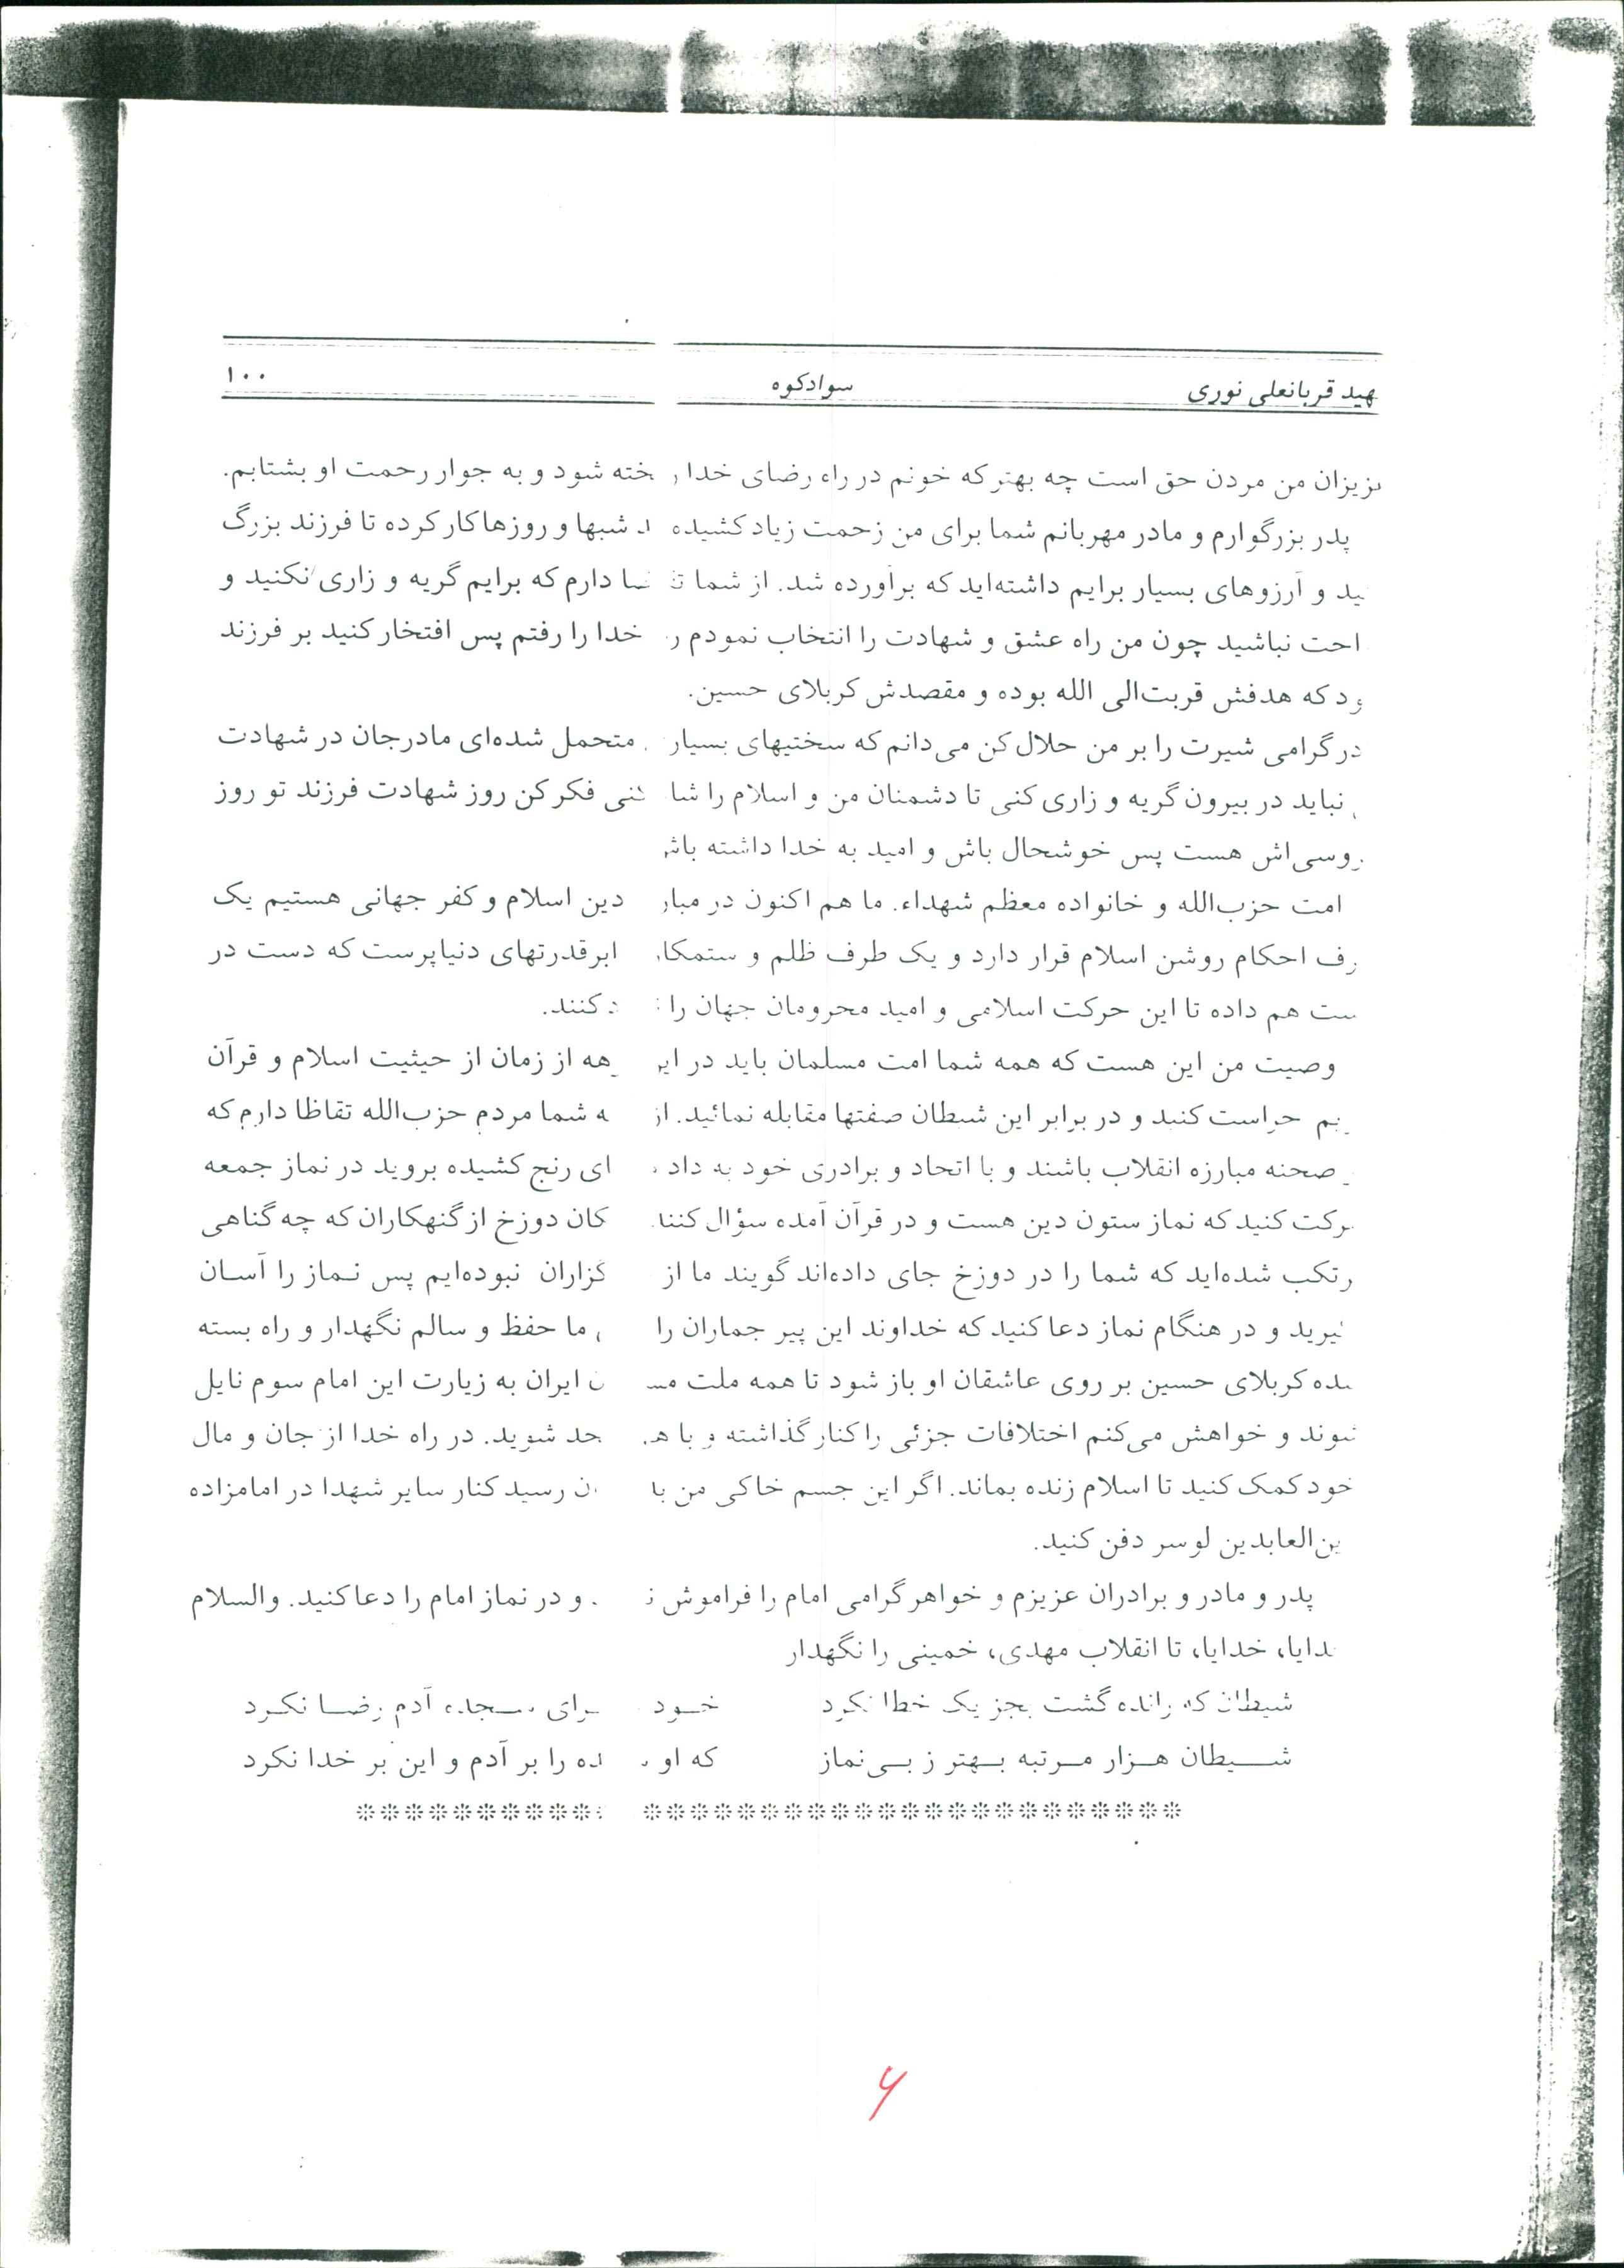 هید قربانعلی نوری سوادکوه ۱۰۰
زیزان من مردن حق است چه بهتر که خونم در راه رضای خدا ر خته شود و به جوار رحمت او بشتابم.
پدر بزرگوارم و مادر مهربانم شما برای من زحمت زیاد کشیده د شبها و روزها کار کرده تا فرزند بزرگ
ید و آرزوهای بسیار برایم داشته‌اید که برآورده شد. از شما تق ضا دارم که برایم گریه و زاری نکنید و
احت نباشید چون من راه عشق و شهادت را انتخاب نمودم ر خدا را رفتم پس افتخار کنید بر فرزند
ود که هدفش قربت‌الی الله بوده و مقصدش کربلای حسین.
در گرامی شیرت را بر من حلال کن می‌دانم که سختیهای بسیار متحمل شده‌ای مادرجان در شهادت
نباید در بیرون گریه و زاری کنی تا دشمنان من و اسلام را شا کنی فکر کن روز شهادت فرزند تو روز
روسی‌اش هست پس خوشحال باش و امید به خدا داشته باش
امت حزب‌الله و خانواده معظم شهداء. ما هم اکنون در مبار دین اسلام و کفر جهانی هستیم یک
رف احکام روشن اسلام قرار دارد و یک طرف ظلم و ستمکا ابرقدرتهای دنیاپرست که دست در
ست هم داده تا این حرکت اسلامی و امید محرومان جهان را د کنند.
وصیت من این هست که همه شما امت مسلمان باید در ایر هه از زمان از حیثیت اسلام و قرآن
یم حراست کنید و در برابر این شیطان صفتها مقابله نمائید. از ه شما مردم حزب‌الله تقاظا دارم که
صحنه مبارزه انقلاب باشند و با اتحاد و برادری خود به داد ای رنج کشیده بروید در نماز جمعه
رکت کنید که نماز ستون دین هست و در قرآن آمده سؤال کنند کان دوزخ از گنهکاران که چه گناهی
رتکب شده‌اید که شما را در دوزخ جای داده‌اند گویند ما از گزاران نبوده‌ایم پس نماز را آسان
یرید و در هنگام نماز دعا کنید که خداوند این پیر جماران را ما حفظ و سالم نگهدار و راه بسته
ده کربلای حسین بر روی عاشقان او باز شود تا همه ملت مس ن ایران به زیارت این امام سوم نایل
شوند و خواهش می‌کنم اختلافات جزئی را کنار گذاشته و با ه حد شوید. در راه خدا از جان و مال
خود کمک کنید تا اسلام زنده بماند. اگر این جسم خاکی من با ن رسید کنار سایر شهدا در امامزاده
ین‌العابدین لوسر دفن کنید.
پدر و مادر و برادران عزیزم و خواهر گرامی امام را فراموش ن و در نماز امام را دعا کنید. والسلام
دایا، خدایا، تا انقلاب مهدی، خمینی را نگهدار
شیطان که رانده گشت بجز یک خطا نکرد خود رای سجده آدم رضا نکرد
شیطان هزار مرتبه بهتر ز بی‌نماز که او ده را بر آدم و این بر خدا نکرد
۶